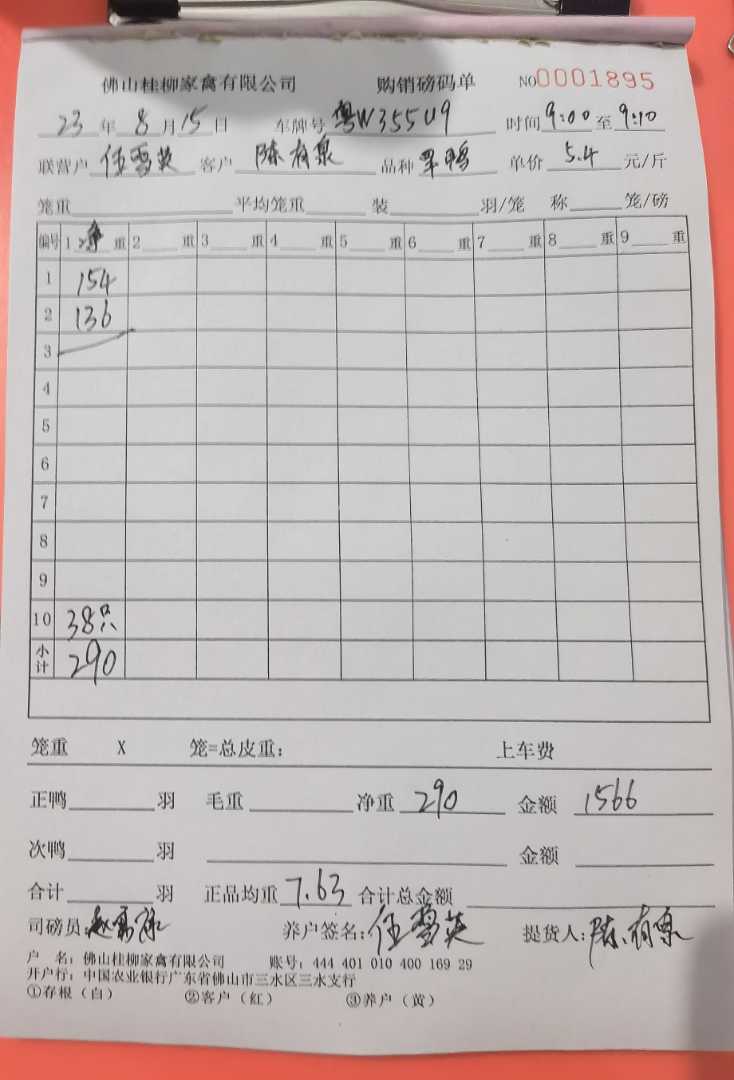 佛山桂柳家禽有限公司 购销磅码单 NO0001895
23年8月15日 车牌号粤W355U9 时间9:00至9:10
联营户任雪英 客户陈有泉 品种 单价5.4元/斤
笼重 平均笼重 装 羽/笼 称 笼/磅
编号 1净重 2 重 3 重 4 重 5 重 6 重 7 重 8 重 9 重
1 154
2 136
3
4
5
6
7
8
9
10 38只
小计 290
笼重 X 笼=总皮重： 上车费
正鸭 羽 毛重 净重290 金额1566
次鸭 羽 金额
合计 羽 正品均重7.63 合计总金额
司磅员： 养户签名：任雪英 提货人：陈有泉
户 名：佛山桂柳家禽有限公司 账号：444 401 010 400 169 29
开户行：中国农业银行广东省佛山市三水区三水支行
①存根（白） ②客户（红） ③养户（黄）